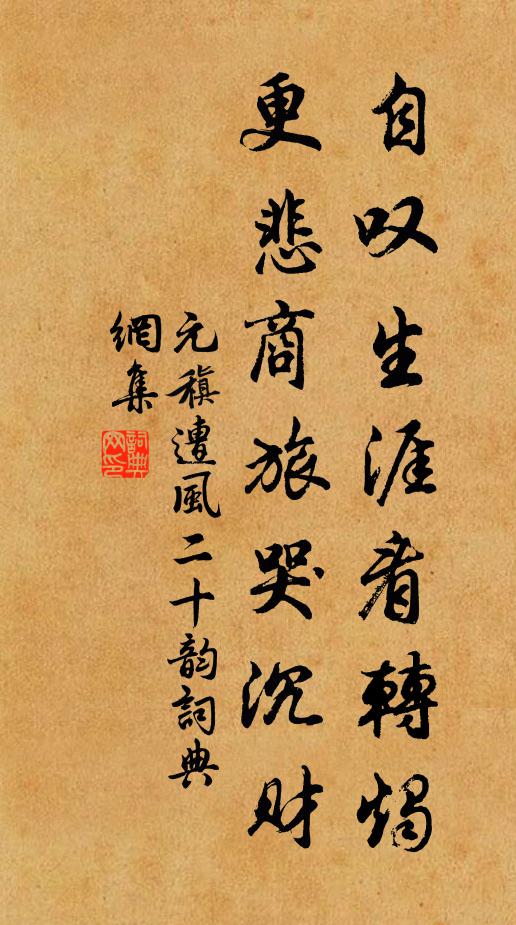 自叹生涯看轉燭
更悲商旅哭沉財
元稹遭風二十韵詞典
網集
詞典
网印